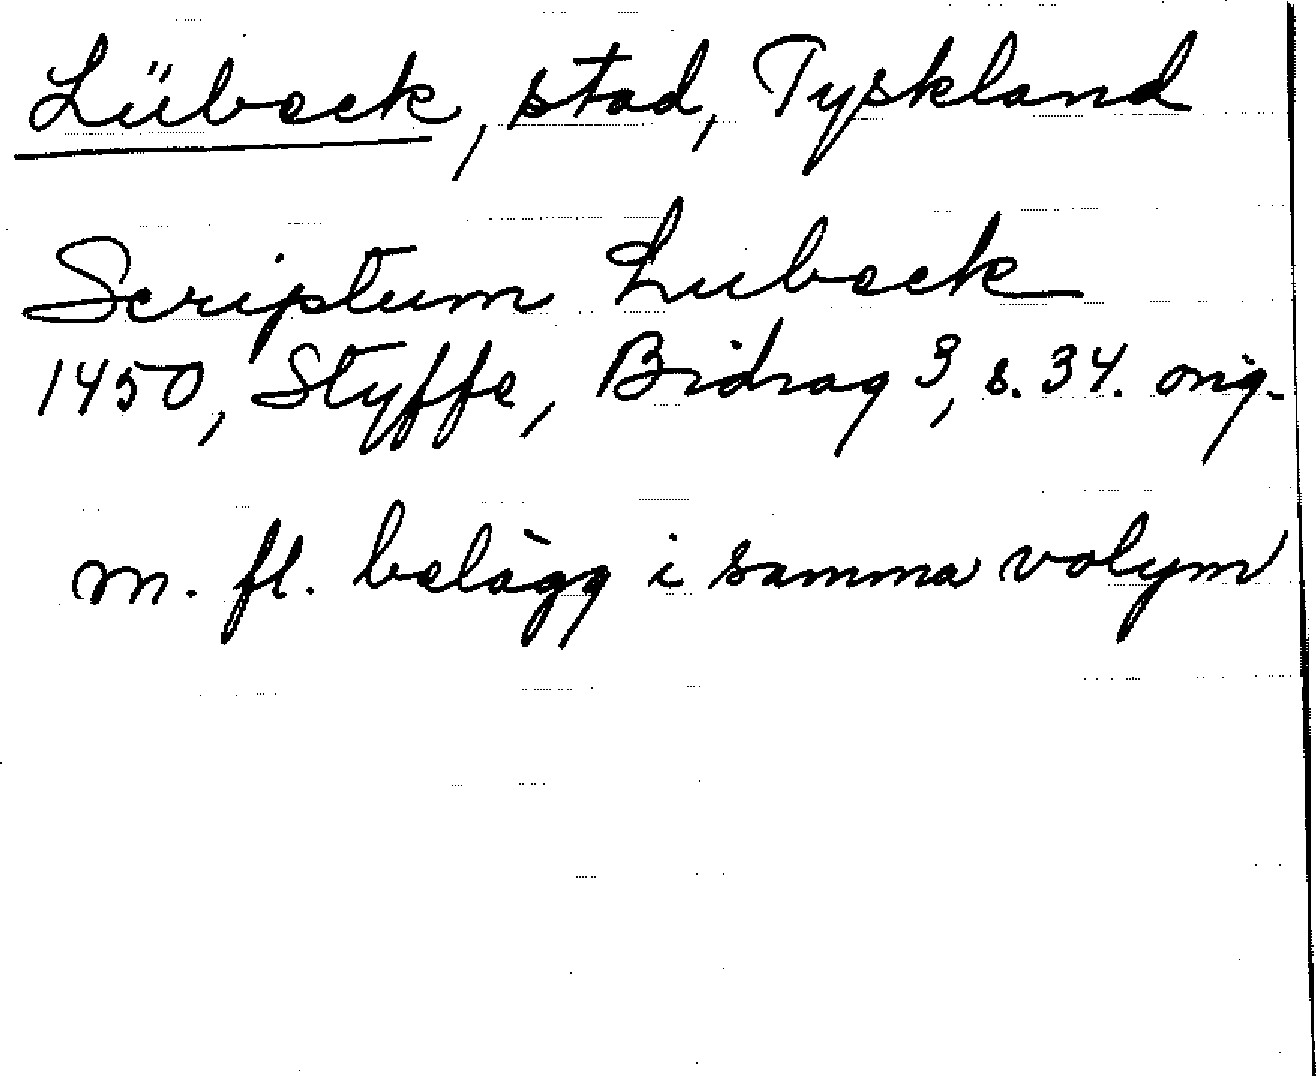 Lübeck, stad, Tyskland
Scriptum Lubeck
1450, Styffe, Bidrag 3, s. 34. orig.
m. fl. belägg i samma volym